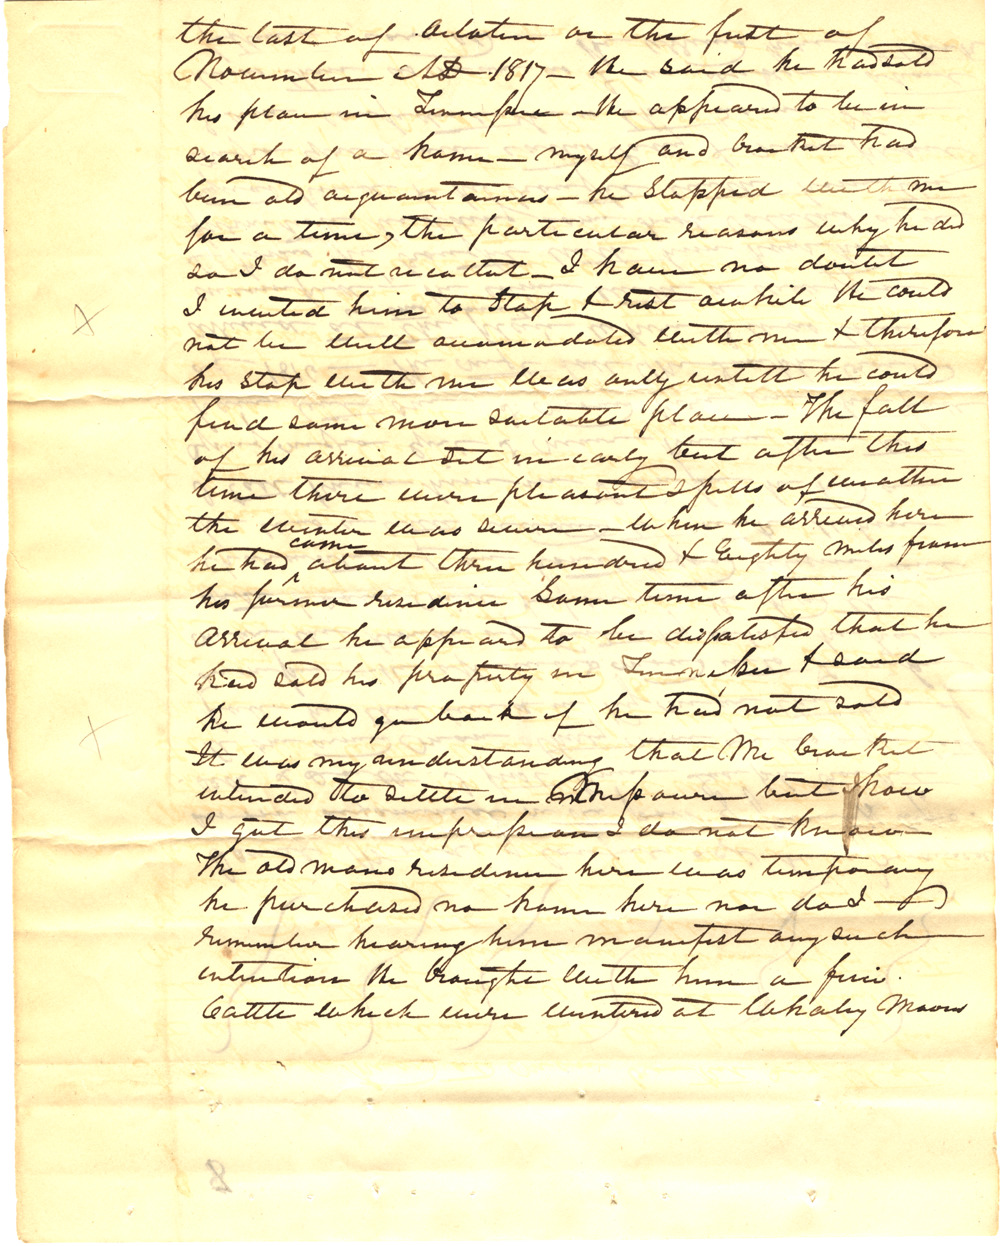 the last of October or the first of
November AD. 1817 - He said he had sold
his place in Tennessee - He appeared to be in
search of a home - myself and Crocket had
been old acquaintances - he stopped with me
for a time, the particular reasons why he did
so I do not recollect - I have no doubt
I invited him to stop & rest awhile He could
not be well accomodated with me & therefore
his stop with me was only untill he could
find some more suitable place - The fall
of his arrival set in early but after this
time there were pleasant spells of weather
the winter was severe - when he arrived here
he had ^came about three hundred & Eighty miles from
his former residence Some time after his
arrival he appeard to be dissatisfed that he
had sold his property in Tennessee & said
he would go back if he had not sold
It was my understanding that Mr Crocket
intended to settle in Missouri but how
I got this impression I do not know
The old mans residence here was temporary
he purchased no home here nor do I
remember hearing him manifest any such
intention He brought with him a few
Cattle which were wintered at Whaley Moors
8